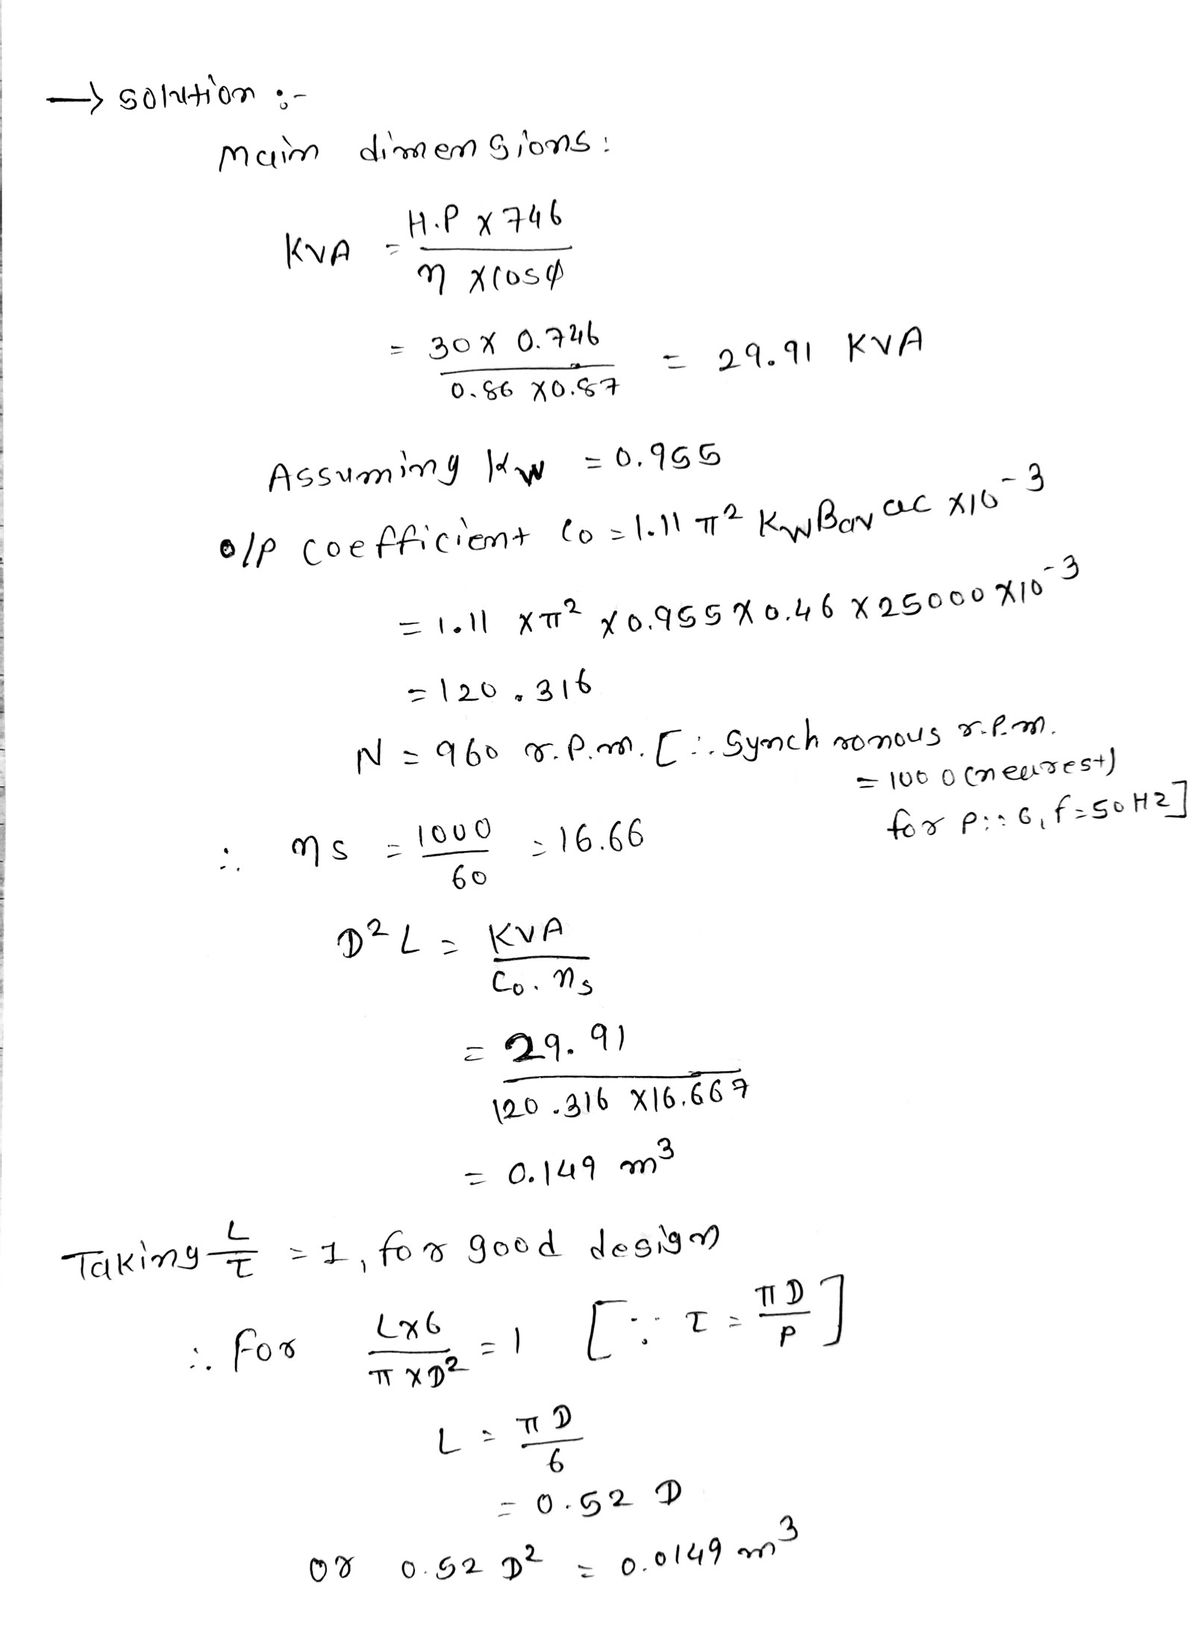 → solution :-
Main dimensions:
KVA = H.P x 746 / η x cosφ
= 30 x 0.746 / 0.86 x 0.87 = 29.91 KVA
Assuming Kw = 0.955
O/P coefficient Co = 1.11 π² Kw Bav ac x 10⁻³
= 1.11 x π² x 0.955 x 0.46 x 25000 x 10⁻³
= 120.316
N = 960 r.p.m. [∴ Synchronous r.p.m.
= 1000 (nearest)
for P:: 6, f = 50 HZ]
∴ ns = 1000 / 60 = 16.66
D² L = KVA / Co. ns
= 29.91 / 120.316 x 16.667
= 0.149 m³
Taking L / τ = 1, for good design
∴ For L x 6 / π x D² = 1 [∵ τ = π D / P]
L = π D / 6
= 0.52 D
or 0.52 D² = 0.0149 m³